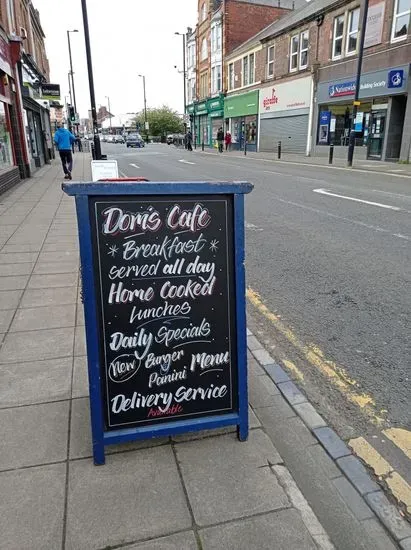 Dom's Cafe
Breakfast
served all day
Home Cooked
Lunches
Daily Specials
New Burger Menu
Panini
Delivery Service
Available
Nationwide Building Society
girafe